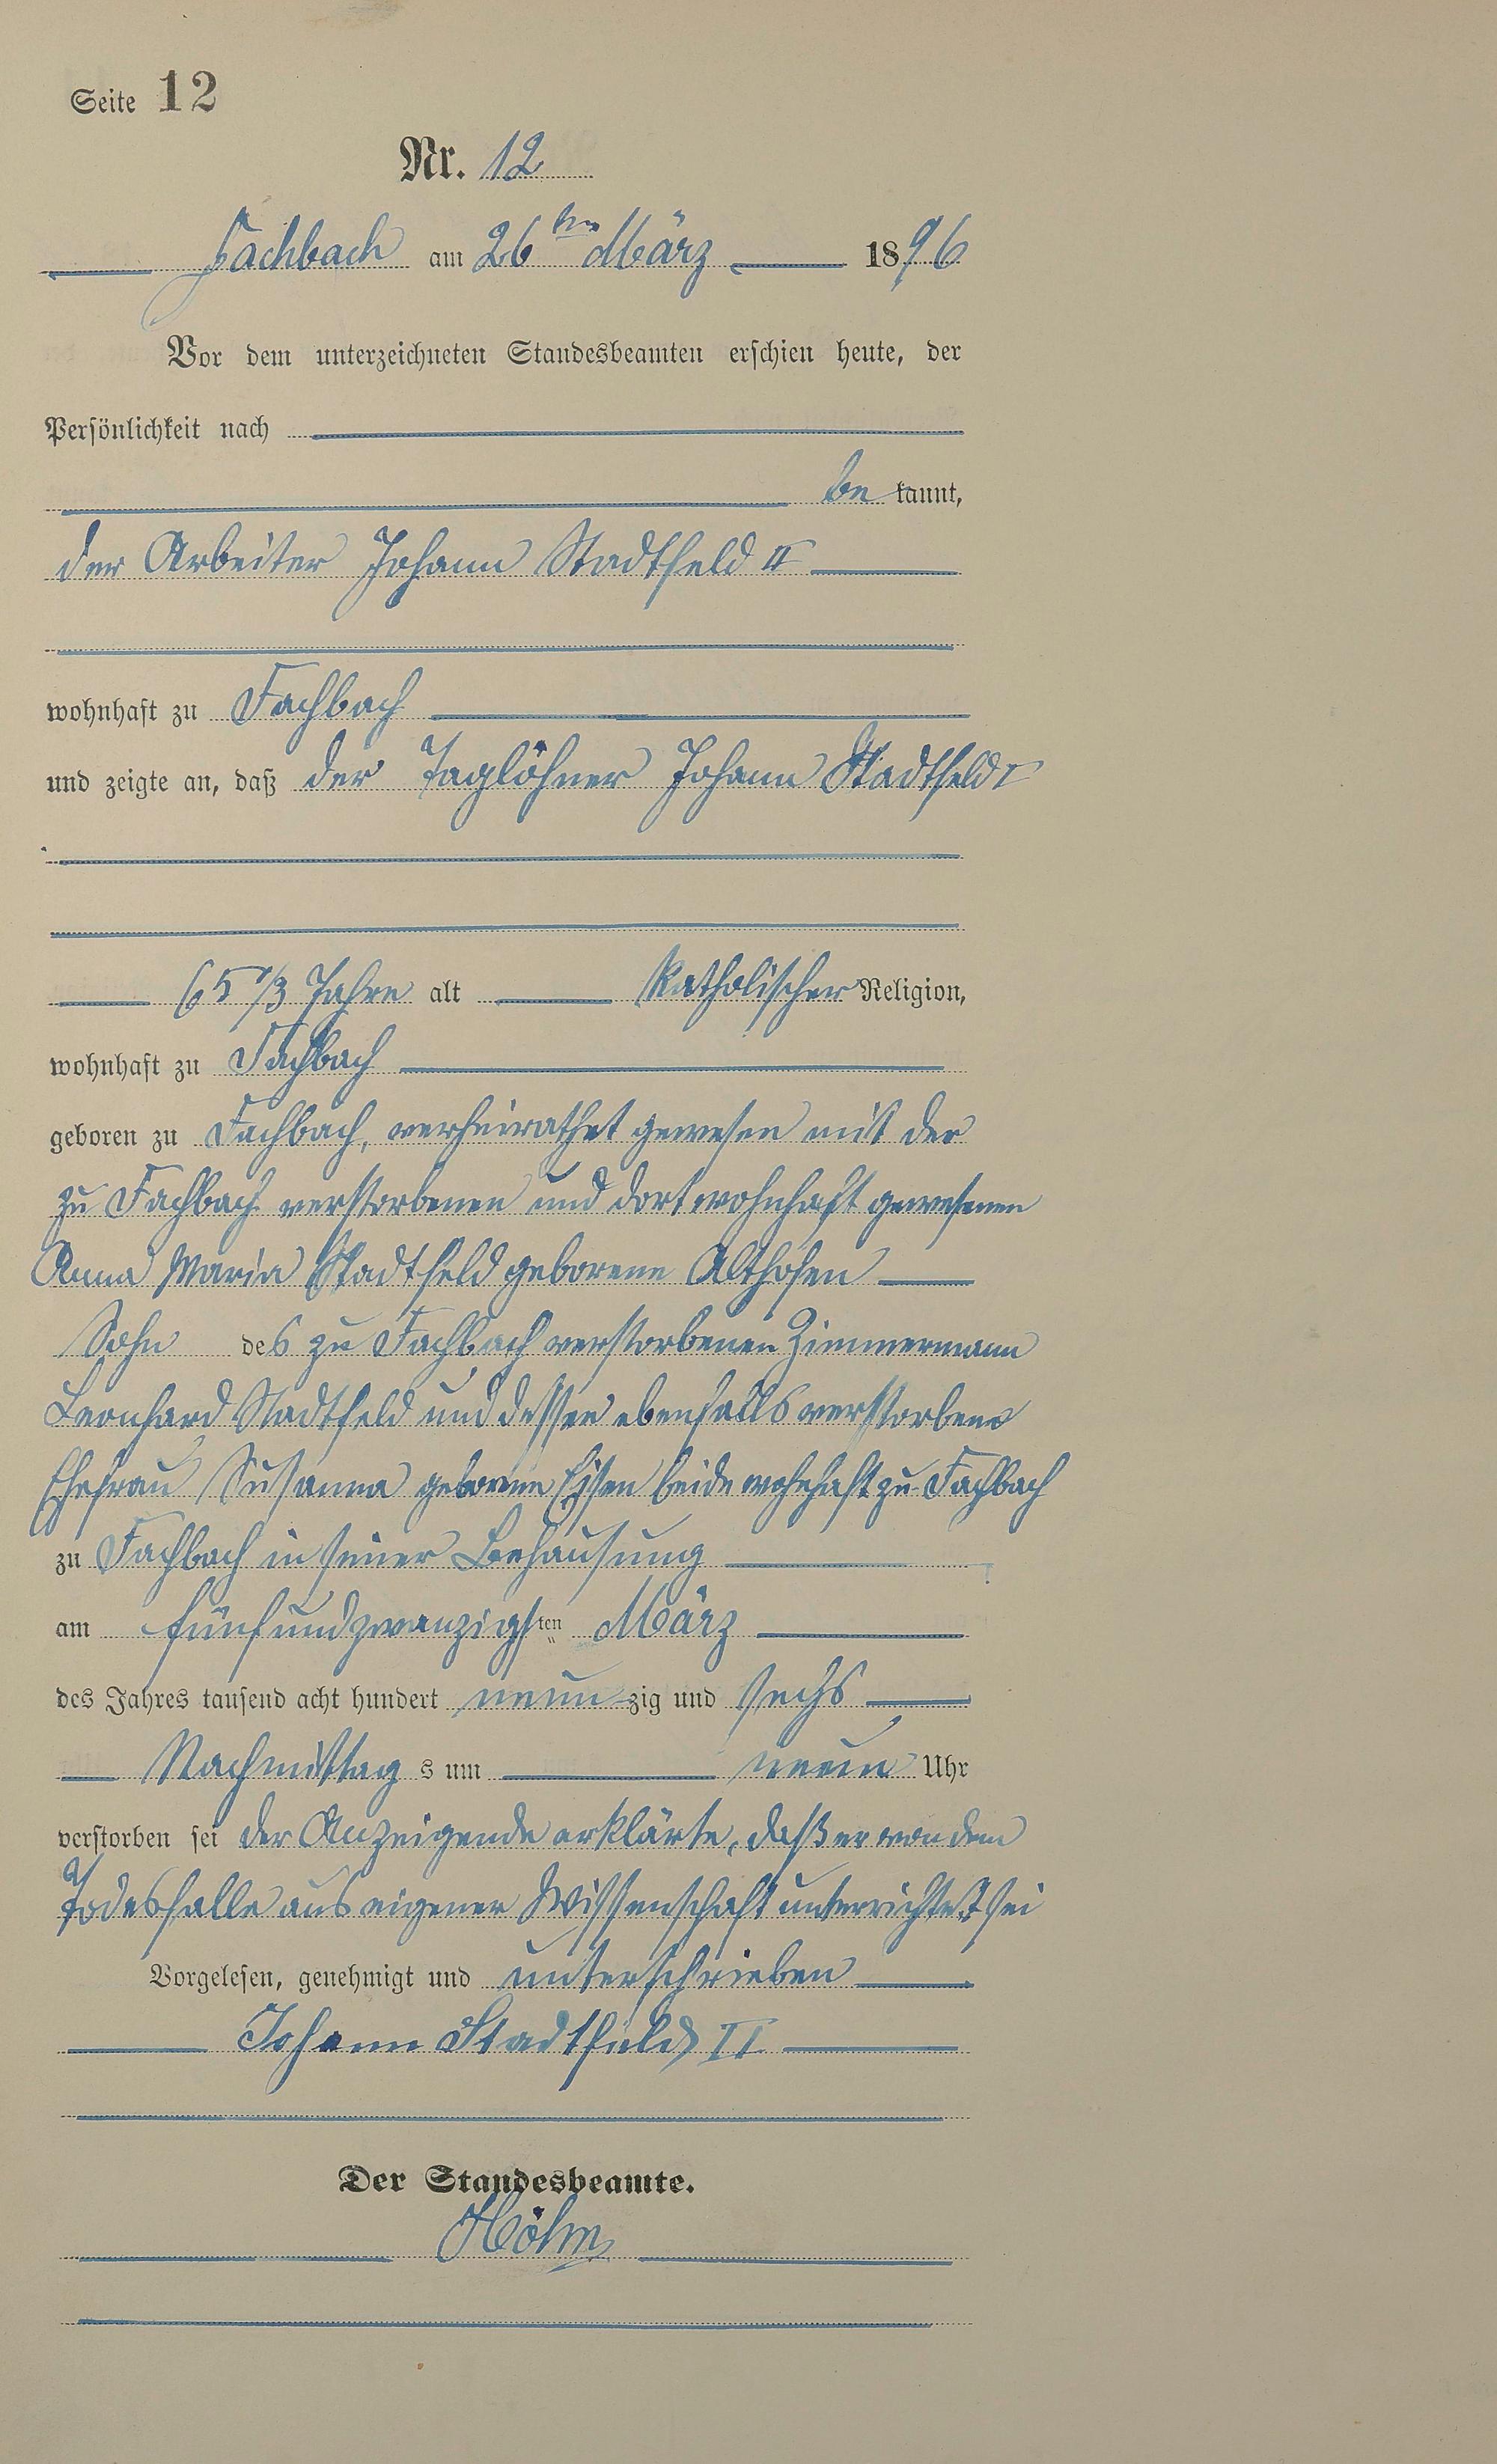 Seite 12
Nr. 12
Fachbach am 26ten März 1896
Vor dem unterzeichneten Standesbeamten erschien heute, der
Persönlichkeit nach
be kannt,
der Arbeiter Johann Stadtfeld II
wohnhaft zu Fachbach
und zeigte an, daß der Taglöhner Johann Stadtfeld I
65 1/3 Jahre alt katholischer Religion,
wohnhaft zu Fachbach
geboren zu Fachbach, verheirathet gewesen mit der
zu Fachbach verstorbenen und dort wohnhaft gewesenen
Anna Maria Stadtfeld geborene Althofen
Sohn des zu Fachbach verstorbenen Zimmermann
Leonhard Stadtfeld und dessen ebenfalls verstorbene
Ehefrau Susanna geborene beide wohnhaft zu Fachbach
zu Fachbach in seiner Behausung
am fünfundzwanzigsten März
des Jahres tausend acht hundert neun zig und sechs
Nachmittag s um neun Uhr
verstorben sei der Anzeigende erklärte, daß er von dem
Todesfalle aus eigener Wissenschaft unterrichtet sei
Vorgelesen, genehmigt und unterschrieben
Johann Stadtfeld II
Der Standesbeamte.